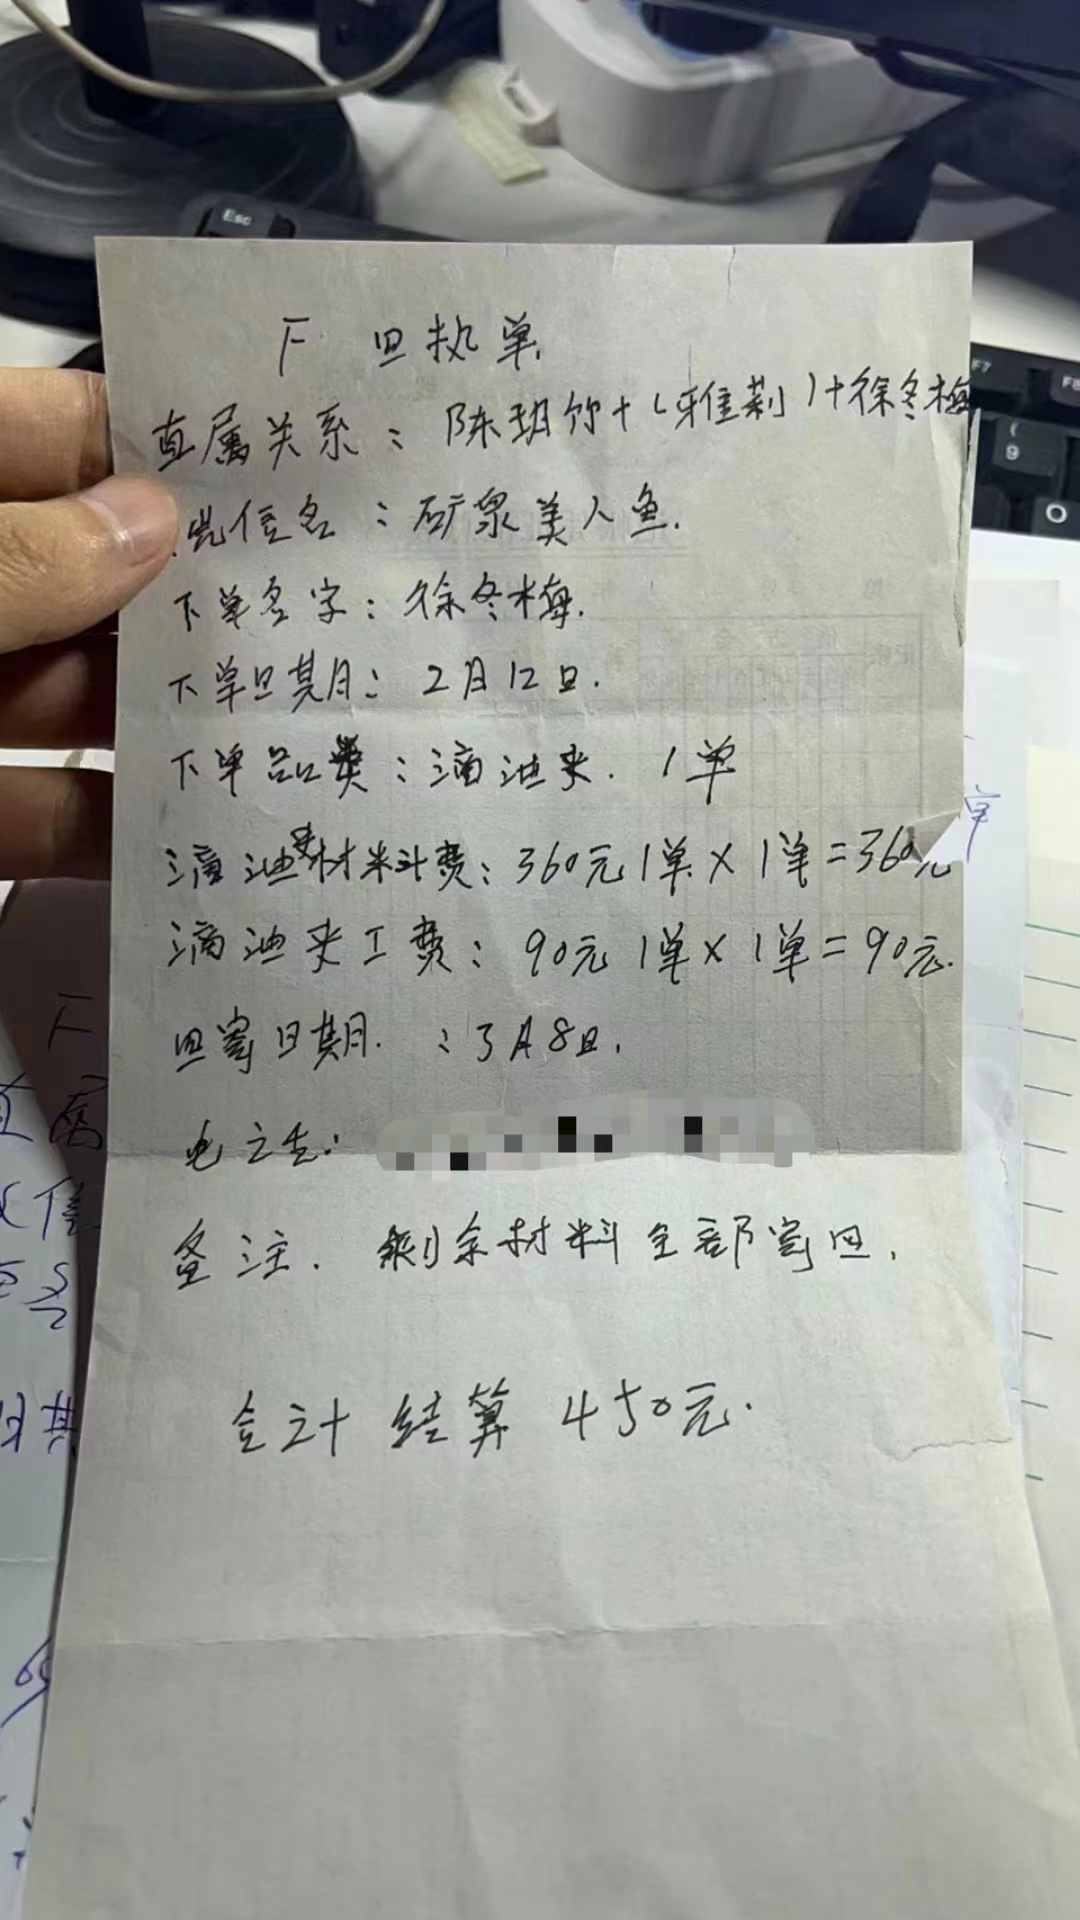 F 回执单.
直属关系: 陈玥竹+(雅莉)+徐冬梅
微信名: 矿泉美人鱼.
下单名字: 徐冬梅.
下单日期: 2月12日.
下单品类: 滴油夹. 1单
滴油夹材料费: 360元1单×1单=360元
滴油夹工费: 90元1单×1单=90元.
回寄日期. : 3月8日.
电话:
备注. 剩余材料全部寄回.
合计结算 450元.
Esc
F7
F8
(
9
O
单
F